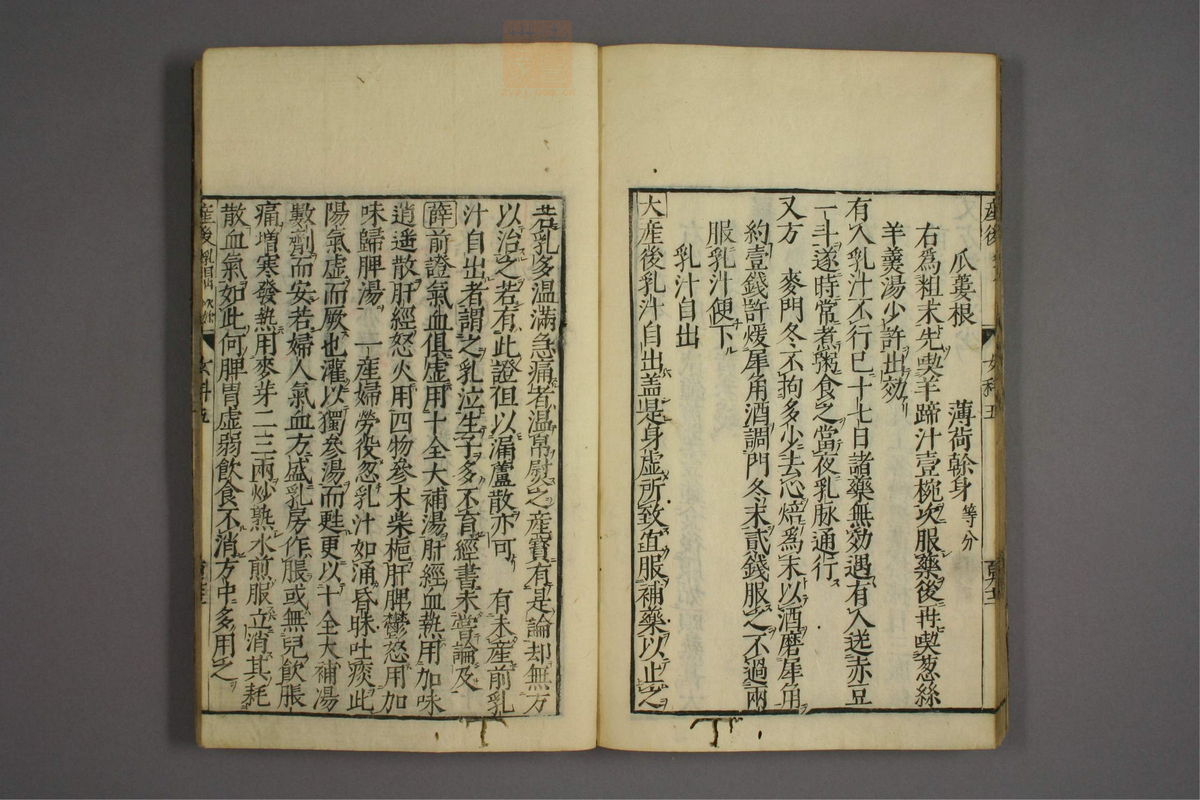 瓜蔞根　薄荷幹身等分
右爲粗末先喫羊蹄汁壹椀次服藥後再喫葱絲
羊羹湯少許出効
有人乳汁不行已十七日諸藥無効遇有人送赤豆
一斗遂時常煮粥食之當夜乳脉通行
又方　麥門冬不拘多少去心焙爲末以酒磨犀角
約壹錢許煖犀角酒調門冬末貳錢服之不過兩
服乳汁便下
乳汁自出
大産後乳汁自出盖是身虚所致宜服補藥以止之
若乳多温滿急痛者温帛熨之産寶有是論却無方
以治之若有此證但以漏蘆散亦可　有未産前乳
汁自出者謂之乳泣生子多不育經書未嘗論及
薛前證氣血俱虚用十全大補湯肝經血熱用加味
逍遥散肝經怒火用四物參朮柴梔肝脾鬱怒用加
味歸脾湯　一産婦勞役忽乳汁如涌昏昧吐痰此
陽氣虚而厥也灌以獨參湯而甦更以十全大補湯
數劑而安若婦人氣血方盛乳房作脹或無兒飲脹
痛增寒發熱用麥芽二三兩炒熟水煎服立消其耗
散血氣如此何脾胃虚弱飲食不消方中多用之
産後
女科五